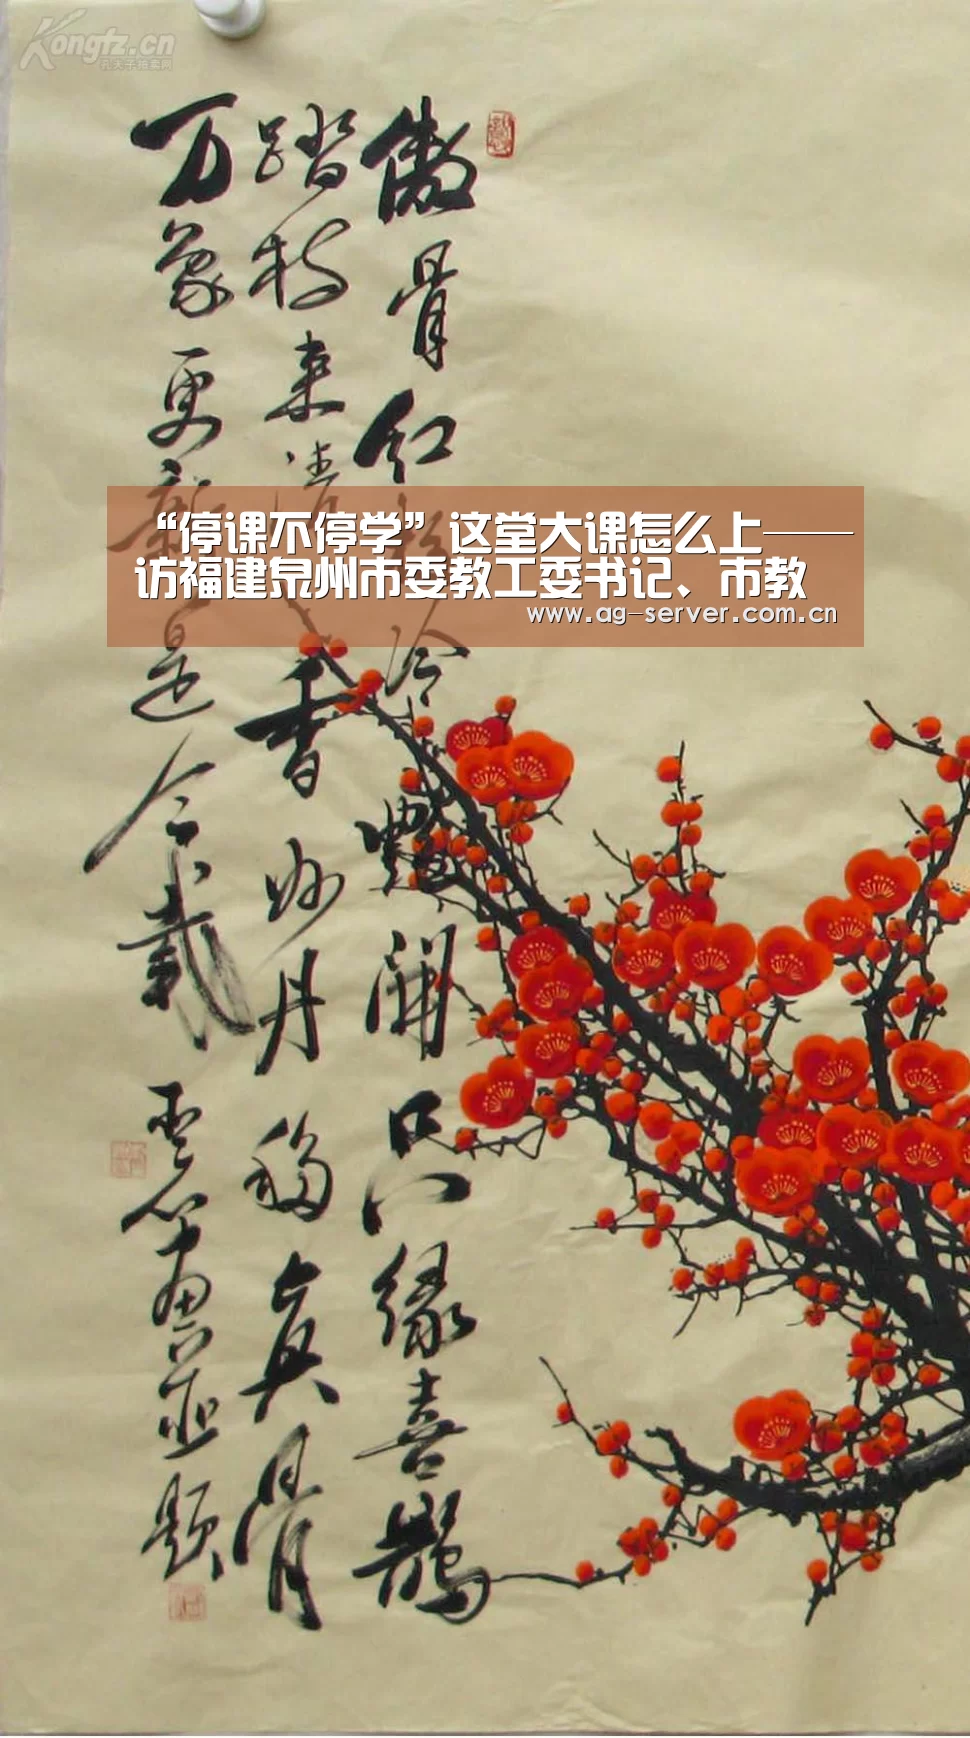 Kongfz.cn
孔夫子拍卖网
傲骨红 冷艳开只缘喜鹊
踏枝来清 香 丹 移真骨
万象更新是今岁 画并题
“停课不停学”这堂大课怎么上——
访福建泉州市委教工委书记、市教
www.ag-server.com.cn